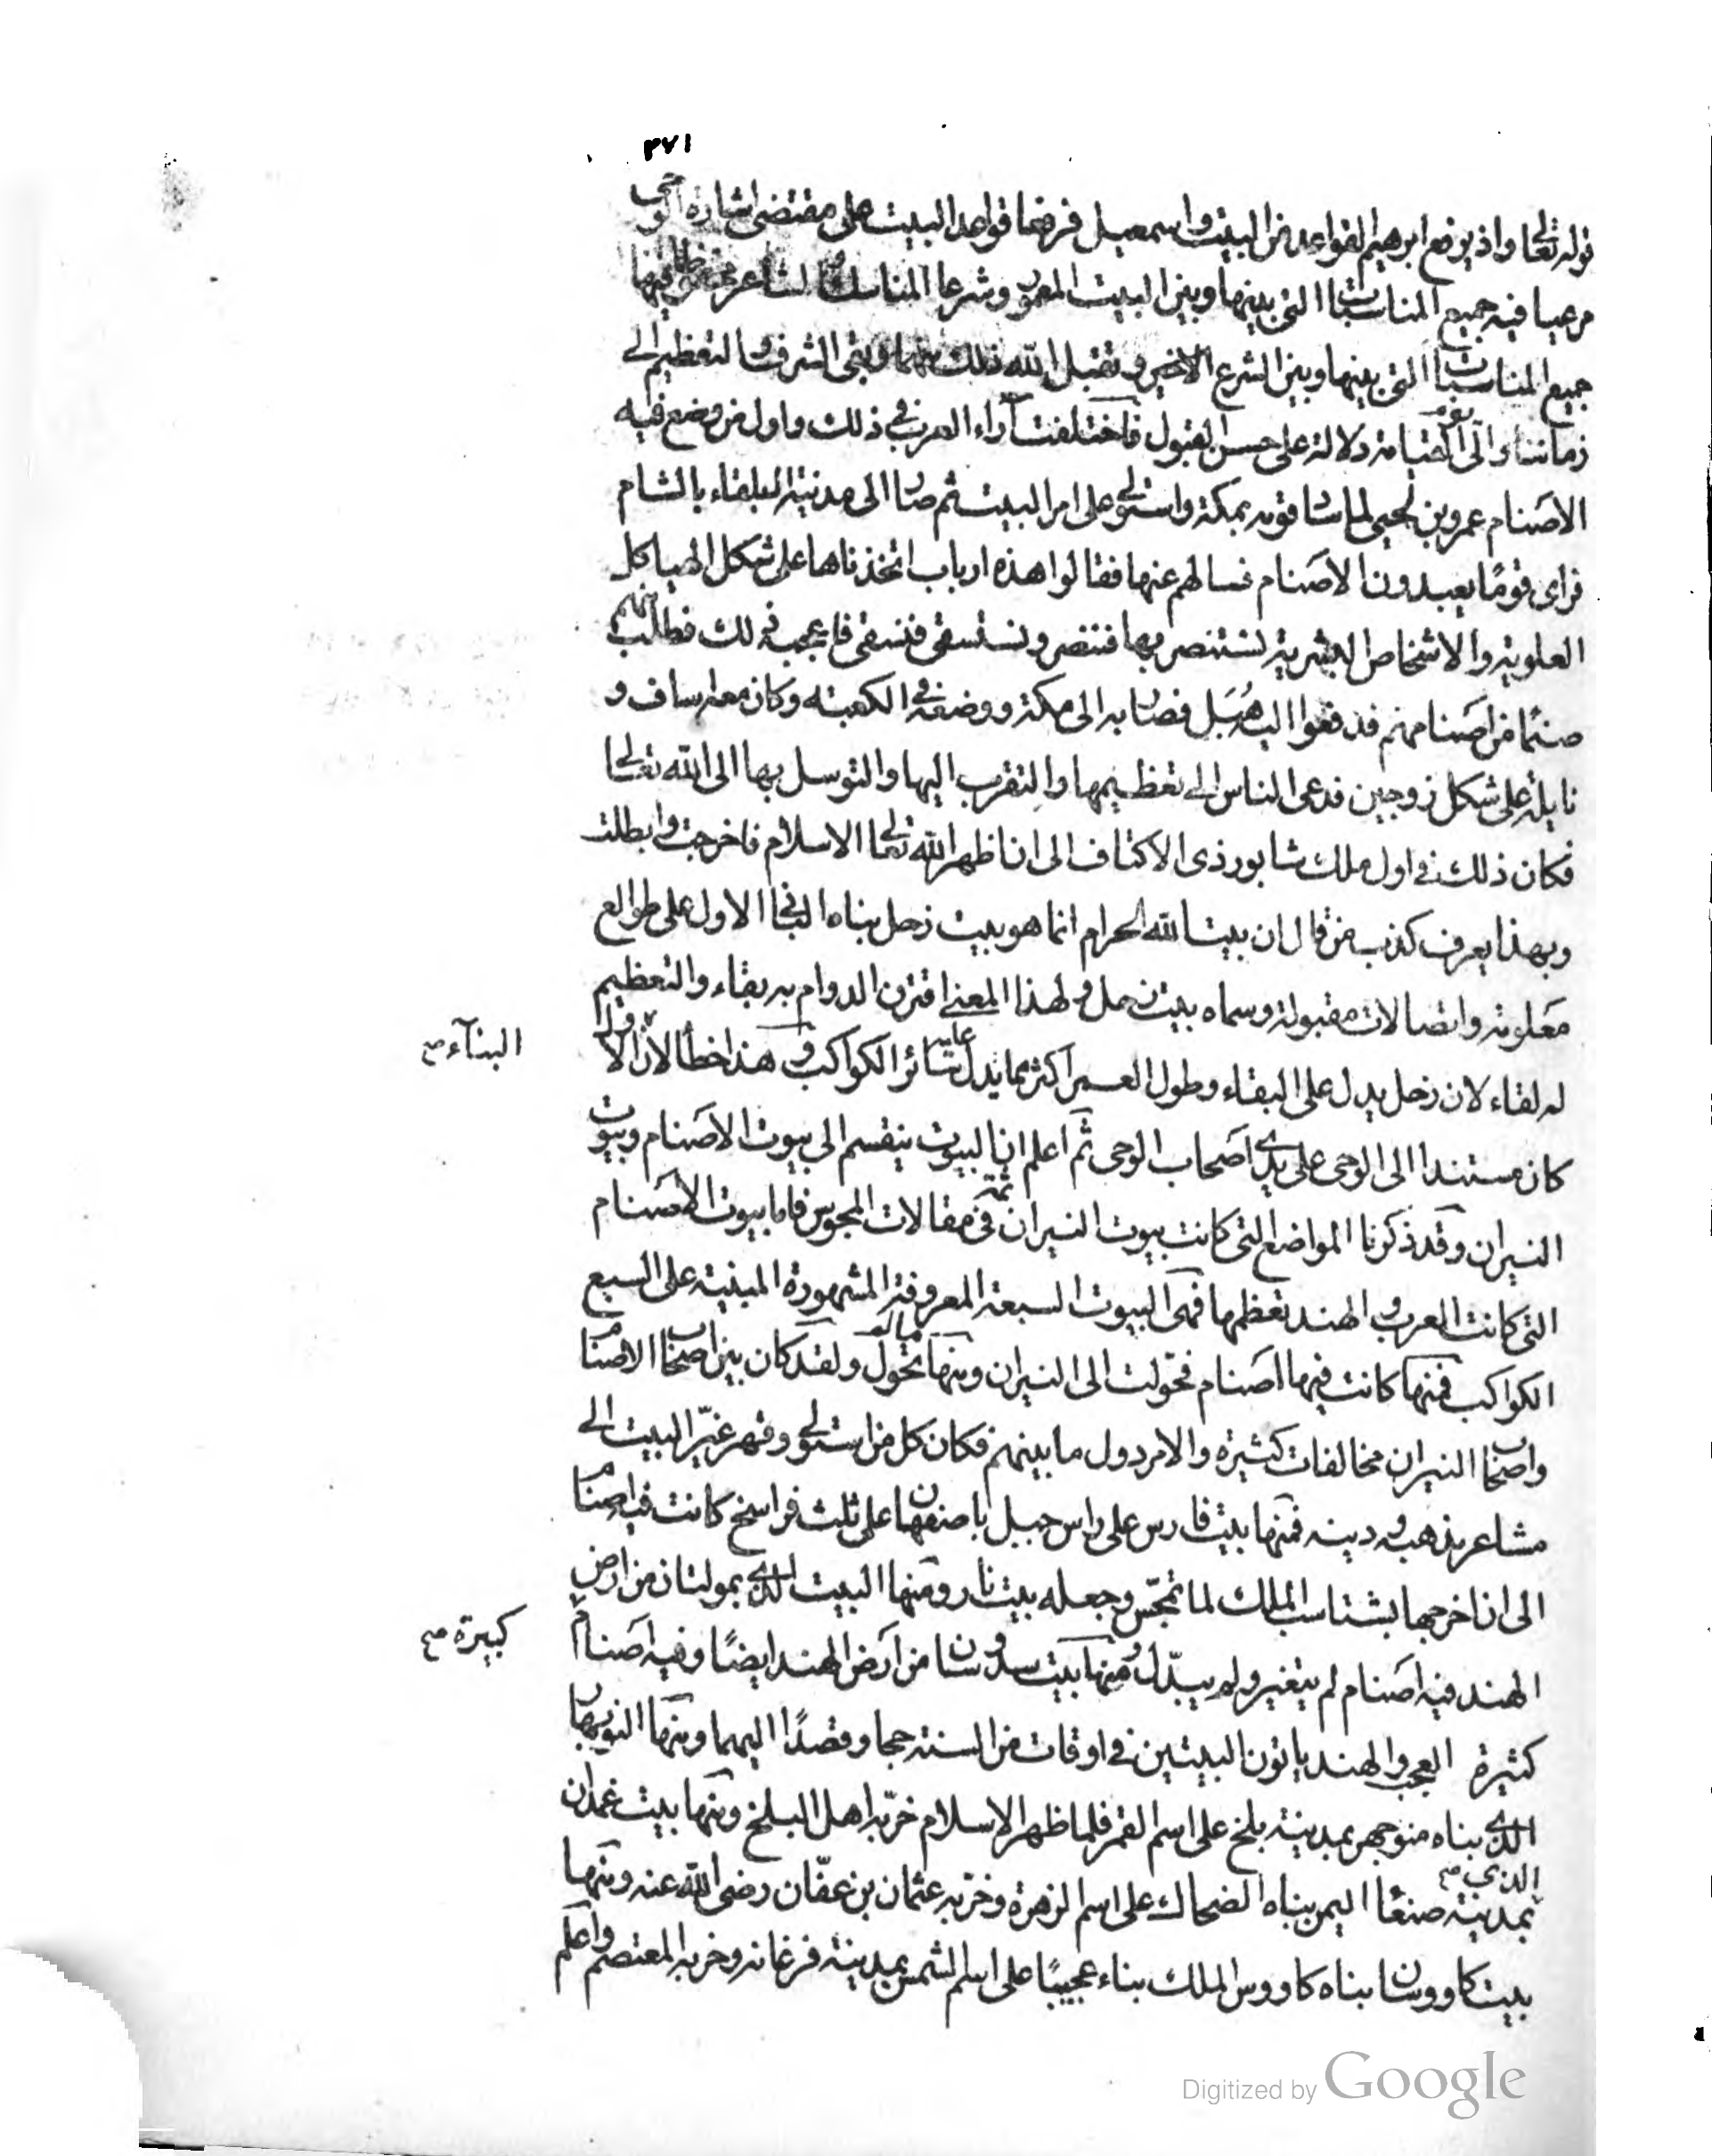 ٣٧١
قوله تعالى واذ يرفع ابرهيم القواعد من البيت واسمعيل فرفعا قواعد البيت على مقتضى اشارة الوحى
مرعيا فيه جميع المناسبات التى بينها وبين البيت المعمور وشرعا المناسك والمشاعر محفوظا فيها
جميع المناسبات التى بينها وبين الشرع الاخير وتقبل الله ذلك منهما وبقى الشرف والتعظيم الى
زماننا والى يوم القيامة دلالة على حسن القبول فاختلفت آراء العرب فى ذلك واول من وضع فيه
الاصنام عمرو بن لحيى لما ساد قومه بمكة واستولى على امر البيت ثم صار الى مدينة البلقاء بالشام
فراى قومًا يعبدون الاصنام فسالهم عنها فقالوا هذه ارباب اتخذناها على شكل الهياكل
العلوية والاشخاص البشرية نستنصر بها فننصر ونستسقى فنسقى فاعجبه ذلك فطلب منهم
صنمًا من اصنامهم فدفعوا اليه هُبَل فصار به الى مكة ووضعه فى الكعبة وكان معه اساف و
نايلة على شكل زوجين فدعى الناس الى تعظيمها والتقرب اليها والتوسل بها الى الله تعالى
فكان ذلك فى اول ملك شابور ذى الاكتاف الى ان اظهر الله تعالى الاسلام فاخرجت وابطلت
وبهذا يعرف كذب من قال ان بيت الله الحرام انما هو بيت زحل بناه البانى الاول على طوالع
معلومة واتصالات مقبولة وسماه بيت زحل ولهذا المعنى اقترن الدوام به بقاء والتعظيم
له لقاء لان زحل يدل على البقاء وطول العمر اكثر مما يدل عليه سائر الكواكب وهذا خطأ لان الاول
البنآء صح
كان مستندا الى الوحى على يدى اصحاب الوحى ثم اعلم ان البيوت ينقسم الى بيوت الاصنام وبيوت
النيران وقد ذكرنا المواضع التى كانت بيوت النيران ثمة فى مقالات المجوس فاما بيوت الاصنام
التى كانت العرب والهند تعظمها فهى البيوت السبعة المعروفة المشهورة المبنية على السبع
الكواكب فمنها كانت فيها اصنام فحوّلت الى النيران ومنها ما لم تحوّل ولقد كان بين اصحاب الاصنام
واصحاب النيران مخالفات كثيرة والامر دول ما بينهم فكان كل من استولى وقهر غيّر البيت الى
مشاعر مذهبه ودينه فمنها بيت فارس على راس جبل باصفهان على ثلث فراسخ كانت فيه اصنام
الى ان اخرجها بشتاسب الملك لما تمجّس وجعله بيت نار ومنها البيت الذى بمولتان من ارض
الهند فيه اصنام لم يتغير ولم يبدّل ومنها بيت سدوسان من ارض الهند ايضًا وفيه اصنام
كبيرة صح
كثيرة العجب والهند ياتون البيتين فى اوقات من السنة حجا وقصدًا اليهما ومنها النوبهار
الذى بناه منوجهر بمدينة بلخ على اسم القمر فلما ظهر الاسلام خرّبه اهل البلخ ومنها بيت غمدان
الذى صح
بمدينة صنعا اليمن بناه الضحاك على اسم الزهرة وخرّبه عثمان بن عفّان رضى الله عنه ومنها
بيت كاووسان بناه كاووس الملك بناء عجيبًا على اسم الشمس بمدينة فرغانه وخربه المعتصم واعلم
Digitized by Google